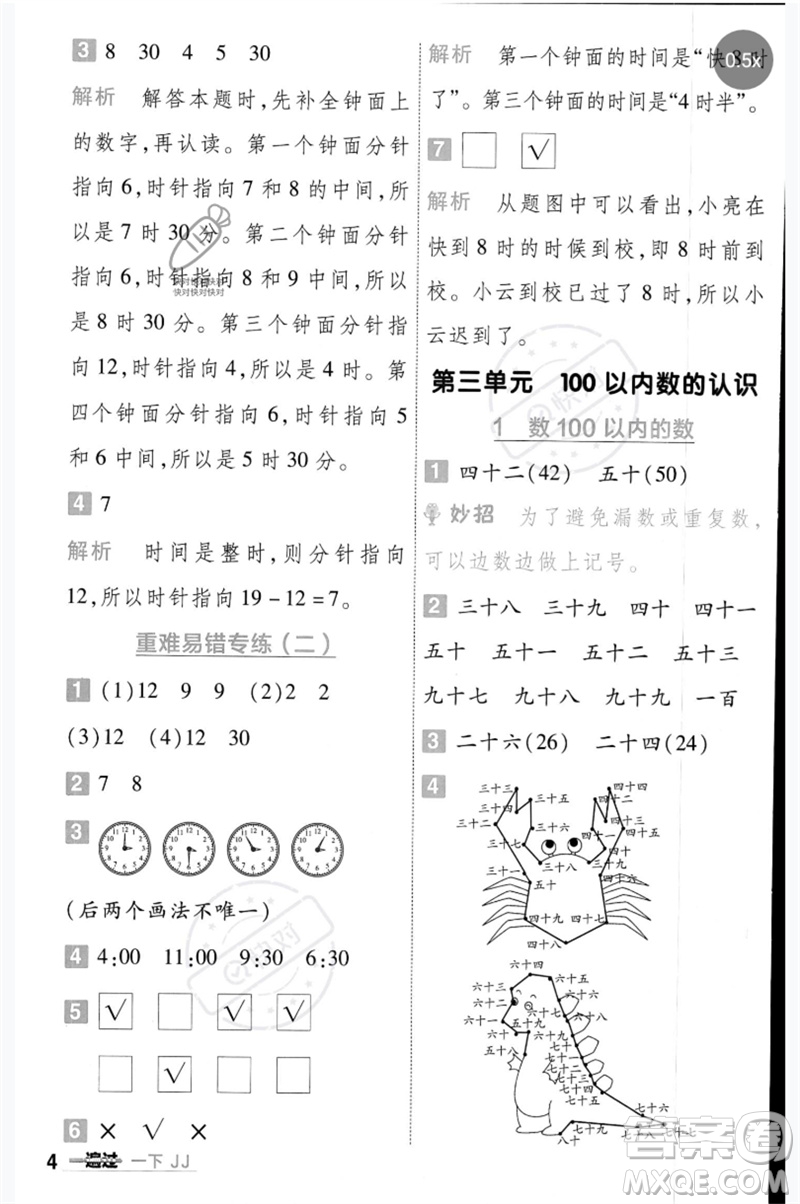 3 8 30 4 5 30
解析 解答本题时,先补全钟面上
的数字,再认读。第一个钟面分针
指向6,时针指向7和8的中间,所
以是7时30分。第二个钟面分针
指向6,时针指向8和9中间,所以
是8时30分。第三个钟面分针指
向12,时针指向4,所以是4时。第
四个钟面分针指向6,时针指向5
和6中间,所以是5时30分。
4 7
解析 时间是整时,则分针指向
12,所以时针指向19-12=7。
重难易错专练(二)
1 (1)12 9 9 (2)2 2
(3)12 (4)12 30
2 7 8
3
(后两个画法不唯一)
4 4:00 11:00 9:30 6:30
5 √ √ √
√
6 × √ ×
4 一遍过 一下 JJ
解析 第一个钟面的时间是“快8时
了”。第三个钟面的时间是“4时半”。
0.5x
7 √
解析 从题图中可以看出,小亮在
快到8时的时候到校,即8时前到
校。小云到校已过了8时,所以小
云迟到了。
第三单元 100以内数的认识
1 数100以内的数
1 四十二(42) 五十(50)
妙招 为了避免漏数或重复数,
可以边数边做上记号。
2 三十八 三十九 四十 四十一
五十 五十一 五十二 五十三
九十七 九十八 九十九 一百
3 二十六(26) 二十四(24)
4
三十三 四十四
三十五 四十二
三十二 三十六 四十六 四十五
三十八 三十九
三十一
五十
四十九 四十七
四十八
六十四
六十三
六十二
六十一 五十九
五十八
七十六
七十七
八十
答案圈
MXQE.COM
快对